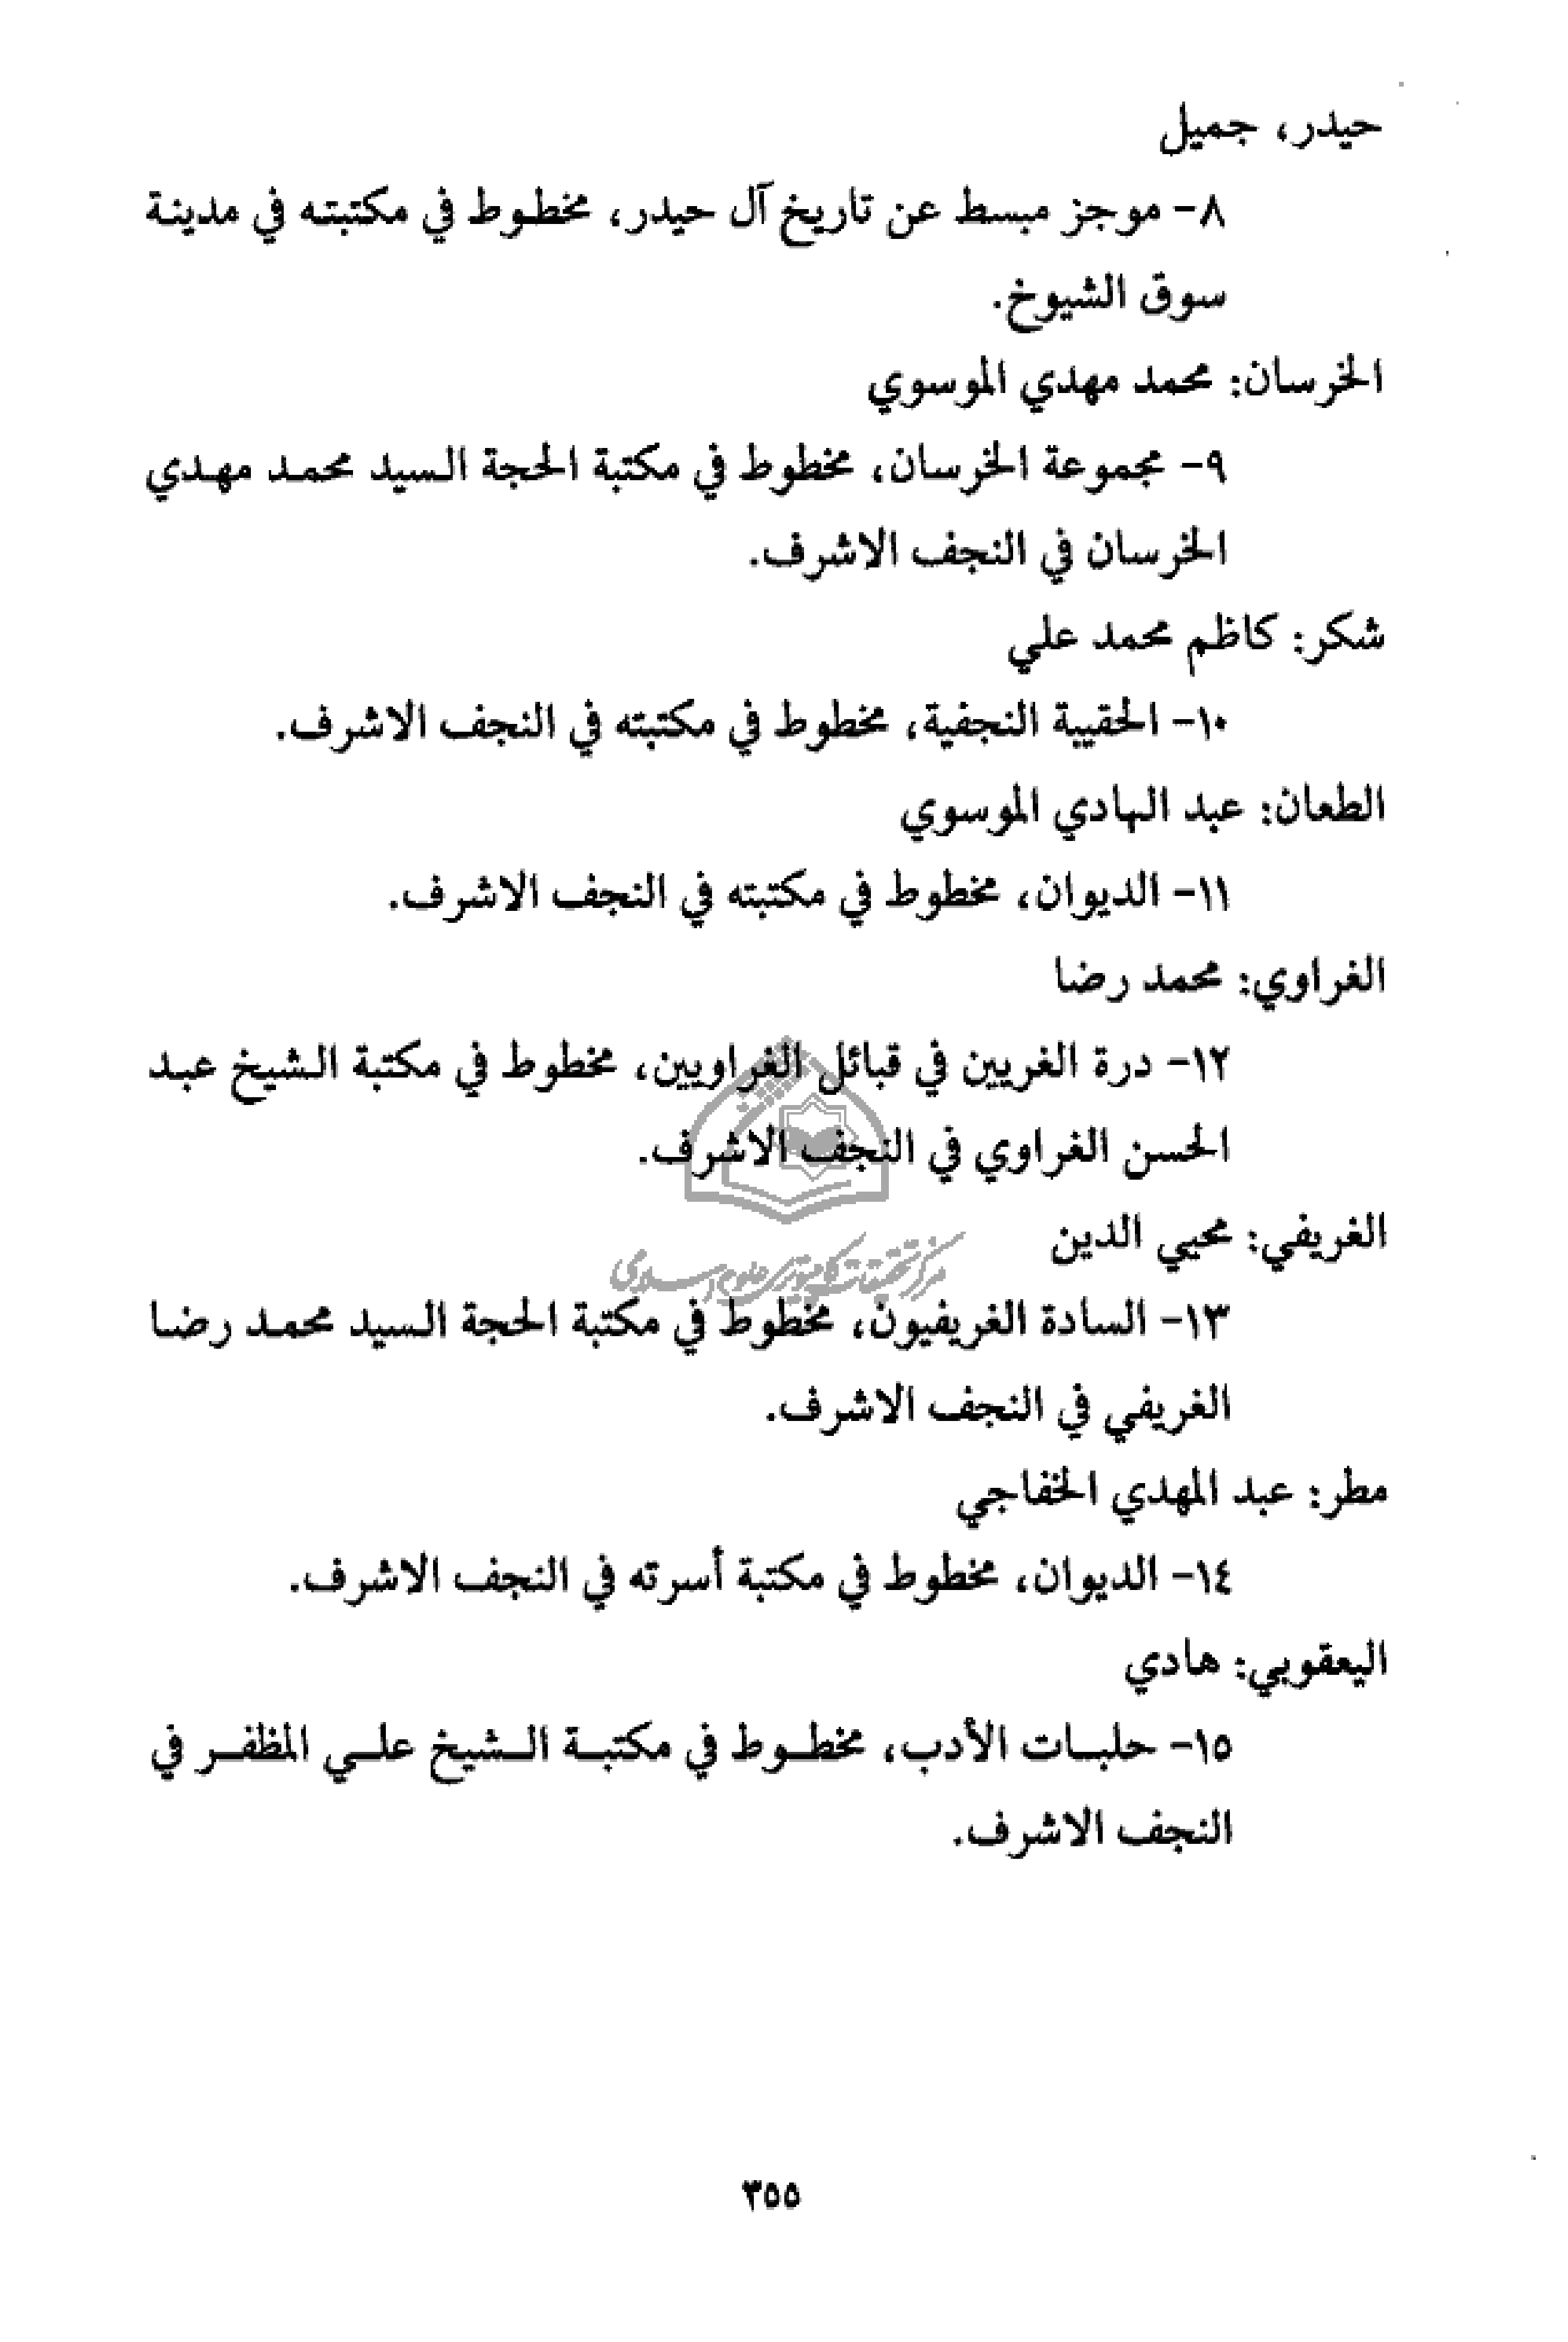 حيدر، جميل
٨- موجز مبسط عن تاريخ آل حيدر، مخطوط في مكتبته في مدينة
سوق الشيوخ.
الخرسان: محمد مهدي الموسوي
٩- مجموعة الخرسان، مخطوط في مكتبة الحجة السيد محمد مهدي
الخرسان في النجف الاشرف.
شكر: كاظم محمد علي
١٠- الحقيبة النجفية، مخطوط في مكتبته في النجف الاشرف.
الطعان: عبد الهادي الموسوي
١١- الديوان، مخطوط في مكتبته في النجف الاشرف.
الغراوي: محمد رضا
١٢- درة الغريين في قبائل الغراويين، مخطوط في مكتبة الشيخ عبد
الحسن الغراوي في النجف الاشرف.
الغريفي: محيي الدين
مركز تحقيقات كامپيوترى علوم اسلامى
١٣- السادة الغريفيون، مخطوط في مكتبة الحجة السيد محمد رضا
الغريفي في النجف الاشرف.
مطر: عبد المهدي الخفاجي
١٤- الديوان، مخطوط في مكتبة أسرته في النجف الاشرف.
اليعقوبي: هادي
١٥- حلبات الأدب، مخطوط في مكتبة الشيخ علي المظفر في
النجف الاشرف.
٣٥٥